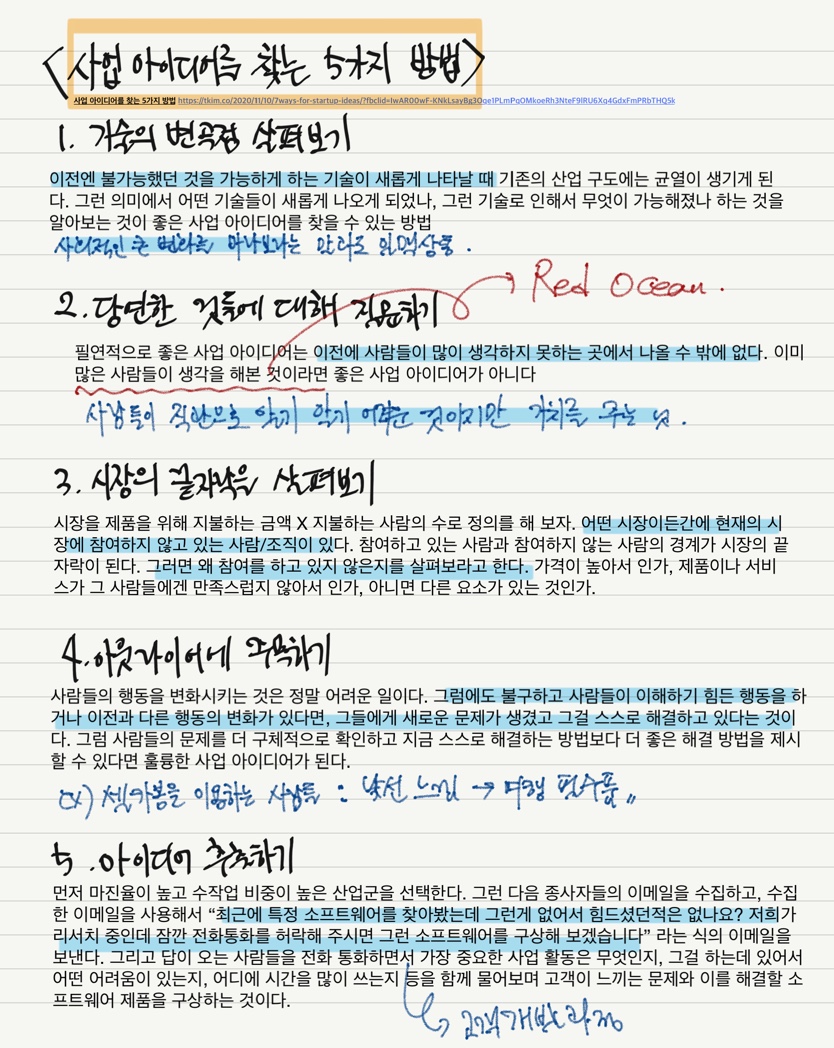 <사업 아이디어를 찾는 5가지 방법>
사업 아이디어를 찾는 5가지 방법 https://tkim.co/2020/11/10/7ways-for-startup-ideas/?fbclid=IwAR00wF-KNkLsayBg3Oge1PLmPgOMkoeRh3NteF9lRU6Xq4GdxFmPRbTHQ5k
1. 기술의 변곡점 살펴보기
이전엔 불가능했던 것을 가능하게 하는 기술이 새롭게 나타날 때 기존의 산업 구도에는 균열이 생기게 된
다. 그런 의미에서 어떤 기술들이 새롭게 나오게 되었나, 그런 기술로 인해서 무엇이 가능해졌나 하는 것을
알아보는 것이 좋은 사업 아이디어를 찾을 수 있는 방법
사회적인 큰 변화를 바라보라는 말과도 일맥상통.
Red Ocean.
2. 당연한 것들에 대해 질문하기
필연적으로 좋은 사업 아이디어는 이전에 사람들이 많이 생각하지 못하는 곳에서 나올 수 밖에 없다. 이미
많은 사람들이 생각을 해본 것이라면 좋은 사업 아이디어가 아니다
사람들이 직관으로 알기 어려운 것이지만 가치를 주는 것.
3. 시장의 끝자락을 살펴보기
시장을 제품을 위해 지불하는 금액 X 지불하는 사람의 수로 정의를 해 보자. 어떤 시장이든간에 현재의 시
장에 참여하지 않고 있는 사람/조직이 있다. 참여하고 있는 사람과 참여하지 않는 사람의 경계가 시장의 끝
자락이 된다. 그러면 왜 참여를 하고 있지 않은지를 살펴보라고 한다. 가격이 높아서 인가, 제품이나 서비
스가 그 사람들에겐 만족스럽지 않아서 인가, 아니면 다른 요소가 있는 것인가.
4. 아웃라이어에 주목하기
사람들의 행동을 변화시키는 것은 정말 어려운 일이다. 그럼에도 불구하고 사람들이 이해하기 힘든 행동을 하
거나 이전과 다른 행동의 변화가 있다면, 그들에게 새로운 문제가 생겼고 그걸 스스로 해결하고 있다는 것이
다. 그럼 사람들의 문제를 더 구체적으로 확인하고 지금 스스로 해결하는 방법보다 더 좋은 해결 방법을 제시
할 수 있다면 훌륭한 사업 아이디어가 된다.
ex) 셀카봉을 이용하는 사람들 : 낯선 느낌 → 여행 필수품〃
5. 아이디어 추출하기
먼저 마진율이 높고 수작업 비중이 높은 산업군을 선택한다. 그런 다음 종사자들의 이메일을 수집하고, 수집
한 이메일을 사용해서 “최근에 특정 소프트웨어를 찾아봤는데 그런게 없어서 힘드셨던적은 없나요? 저희가
리서치 중인데 잠깐 전화통화를 허락해 주시면 그런 소프트웨어를 구상해 보겠습니다” 라는 식의 이메일을
보낸다. 그리고 답이 오는 사람들을 전화 통화하면서 가장 중요한 사업 활동은 무엇인지, 그걸 하는데 있어서
어떤 어려움이 있는지, 어디에 시간을 많이 쓰는지 등을 함께 물어보며 고객이 느끼는 문제와 이를 해결할 소
프트웨어 제품을 구상하는 것이다.
고객개발과정